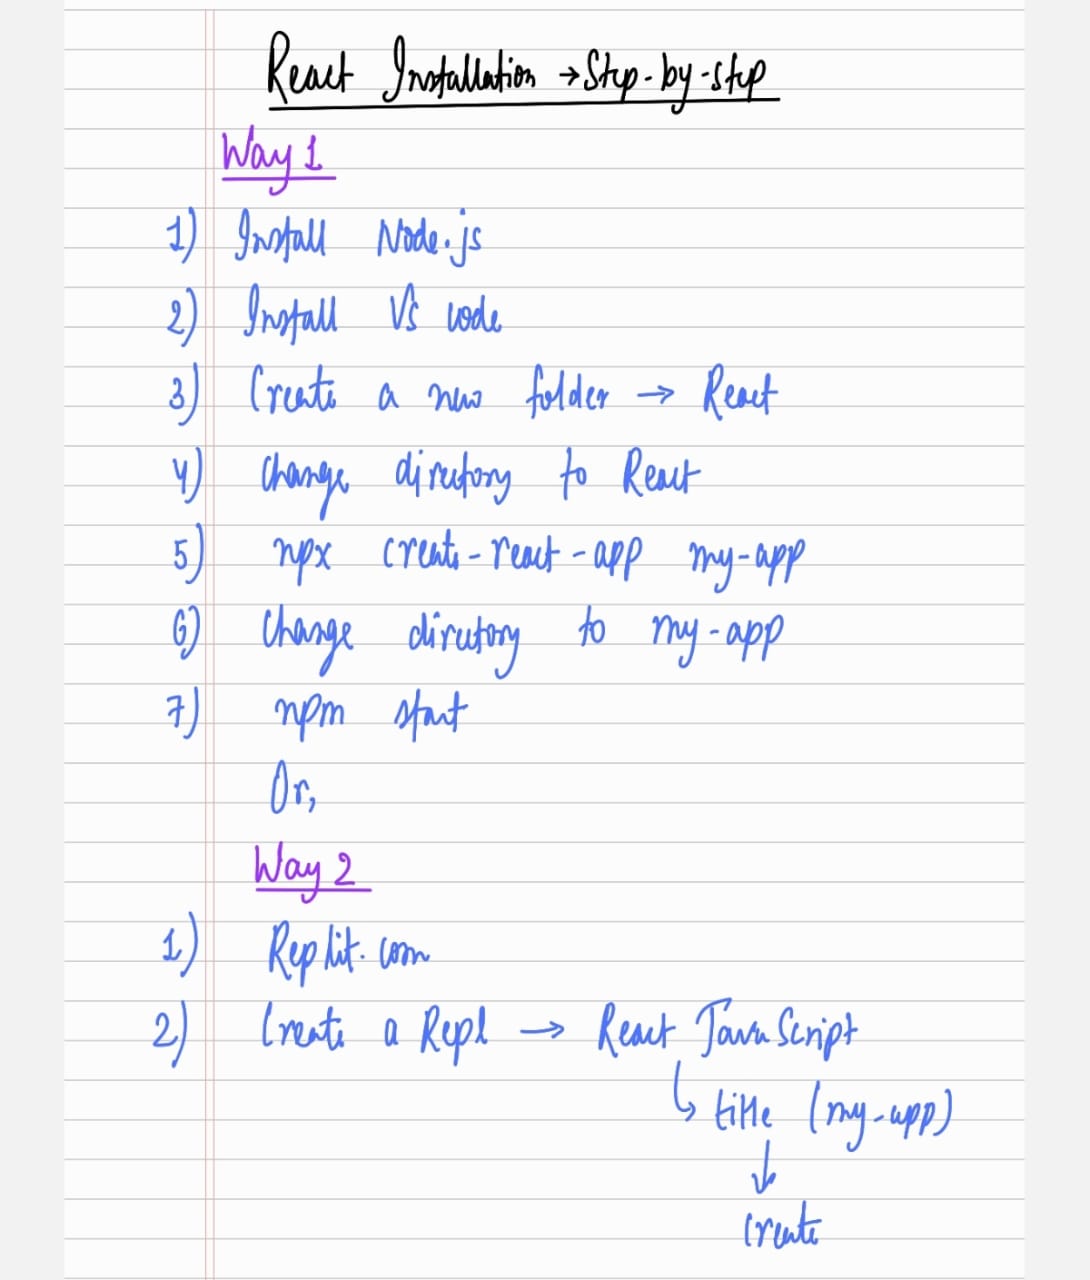 React Installation → Step-by-step
Way 1
1) Install Node.js
2) Install Vs code
3) Create a new folder → React
4) Change directory to React
5) npx create-react-app my-app
6) Change directory to my-app
7) npm start
Or,
Way 2
1) Replit.com
2) Create a Repl → React JavaScript
↳ title (my-app)
↓
create